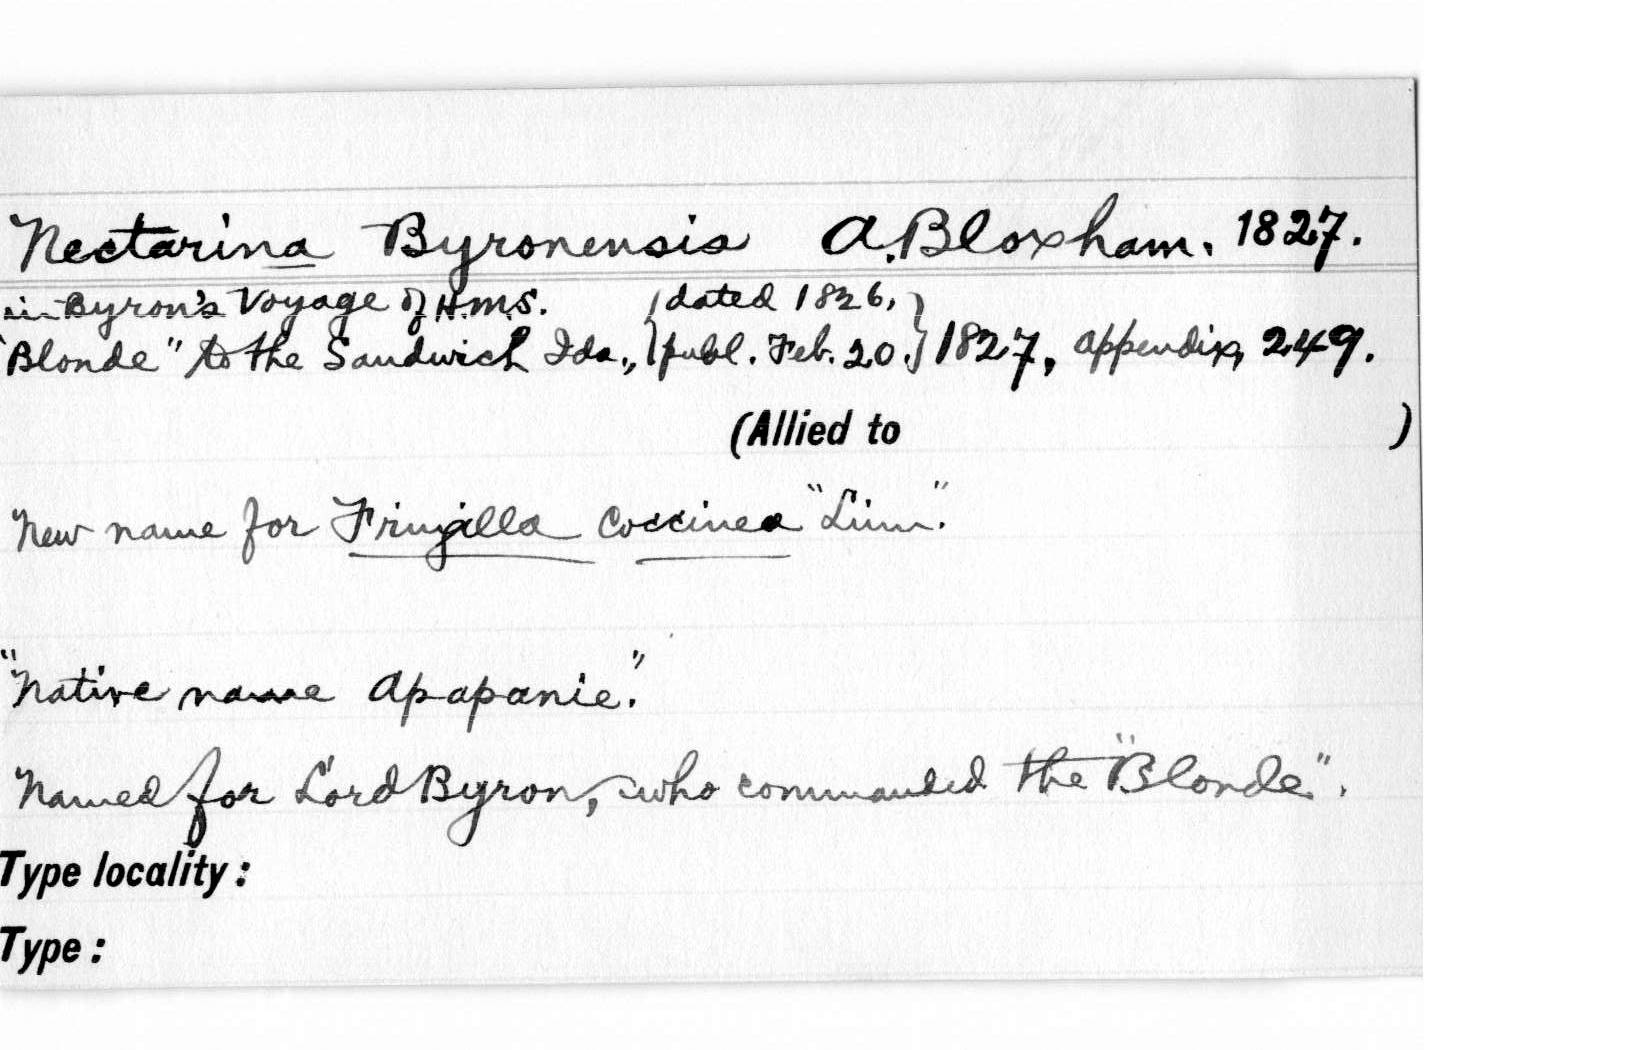 Nectarina Byronensis A. Bloxham. 1827.
in Byron's Voyage of H.M.S. {dated 1826,}
"Blonde" to the Sandwich Ids., {publ. Feb. 20.} 1827, appendix, 249.
(Allied to )
New name for Fringilla coccinea "Linn".
"Native name Apapanie."
Named for Lord Byron, who commanded the "Blonde".
Type locality:
Type: